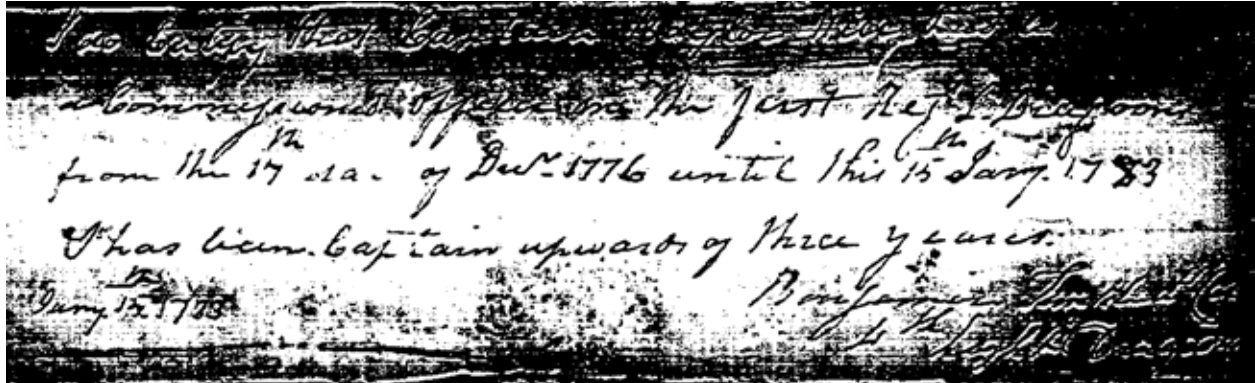 I do certify that Captain
a Commissioned officer in the first Regt L. Dragoons
from the 17th da. of Decr. 1776 until this 15th Jany. 1783
& has been Captain upwards of three years.
Jany 15th 1783
Benjamin
Light Dragoons